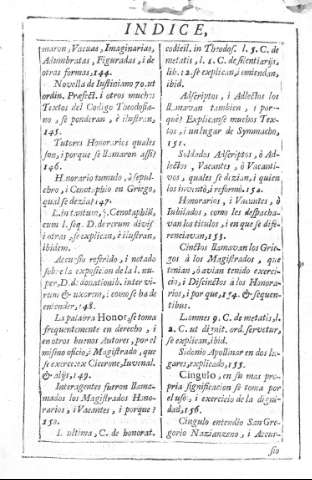 INDICE,
maron, Vacuas, Imaginarias,
Adumbratas, Figuradas, i de
otras formas, 144.
Novella de Iustiniano 70. ut
ordin. Præfect. i otros muchos
Textos del Codigo Theodosia-
no, se ponderan, è ilustran,
145.
Tutores Honorarios quales
son, i porque se llamaron assi?
146.
Honorario tumulo, ò sepul-
cro, i Cenotaphio en Griego,
qual se dezia? 147.
L. in tantum, §. Cenotaphiũ,
cum l. seq. D. de rerum divis.
i otras, se explican, è ilustran,
ibidem.
Accursio referido, i notado
sobre la exposicion de la l. nu-
per, D. de donationib. inter vi-
rum & uxorem, i como se ha de
entender, 148.
La palabra Honor, se toma
frequentemente en derecho, i
en otros buenos Autores, por el
mismo oficio, ò Magistrado, que
se exerce: ex Cicerone, Iuvenal.
& alijs, 149.
Interagentes fueron llama-
mados los Magistrados Hono-
rarios, i Vacantes, i porque?
150.
l. ultima, C. de honorat.
codicil. in Theodos. l. 5. C. de
metatis, l. 1. C. de silentiarijs,
lib. 12. se explican, i emiendan,
ibid.
Adscriptos, i Adlectos los
llamavan tambien, i por-
què? Explicanse muchos Tex-
tos, i un lugar de Symmacho,
151.
Soldados Adscriptos, ò Ad-
lectos, Vacantes, ò Vacanti-
vos, quales se dezian, i quien
los inventò, i reformò. 152.
Honorarios, i Vacantes, ò
Iubilados, como les despacha-
van ha titulos, i en que se dife-
renciavan, 153.
Cinctos llamavan los Grie-
gos à los Magistrados, que
tenian, ò avian tenido exerci-
cio, i Discinctos à los Honora-
rios, i por que, 154. & sequen-
tibus.
L. omnes 9. C. de metatis, l.
2. C. ut dignit. ord. servetur,
se explican, ibid.
Sidonio Apollinar en dos lu-
gares, explicado, 155.
Cingulo, en su mas pro-
pria significacion se toma por
el uso, i exercicio de la digni-
dad, 156.
Cingulo entendio San Gre-
gorio Nazianzeno, i Accur-
sio